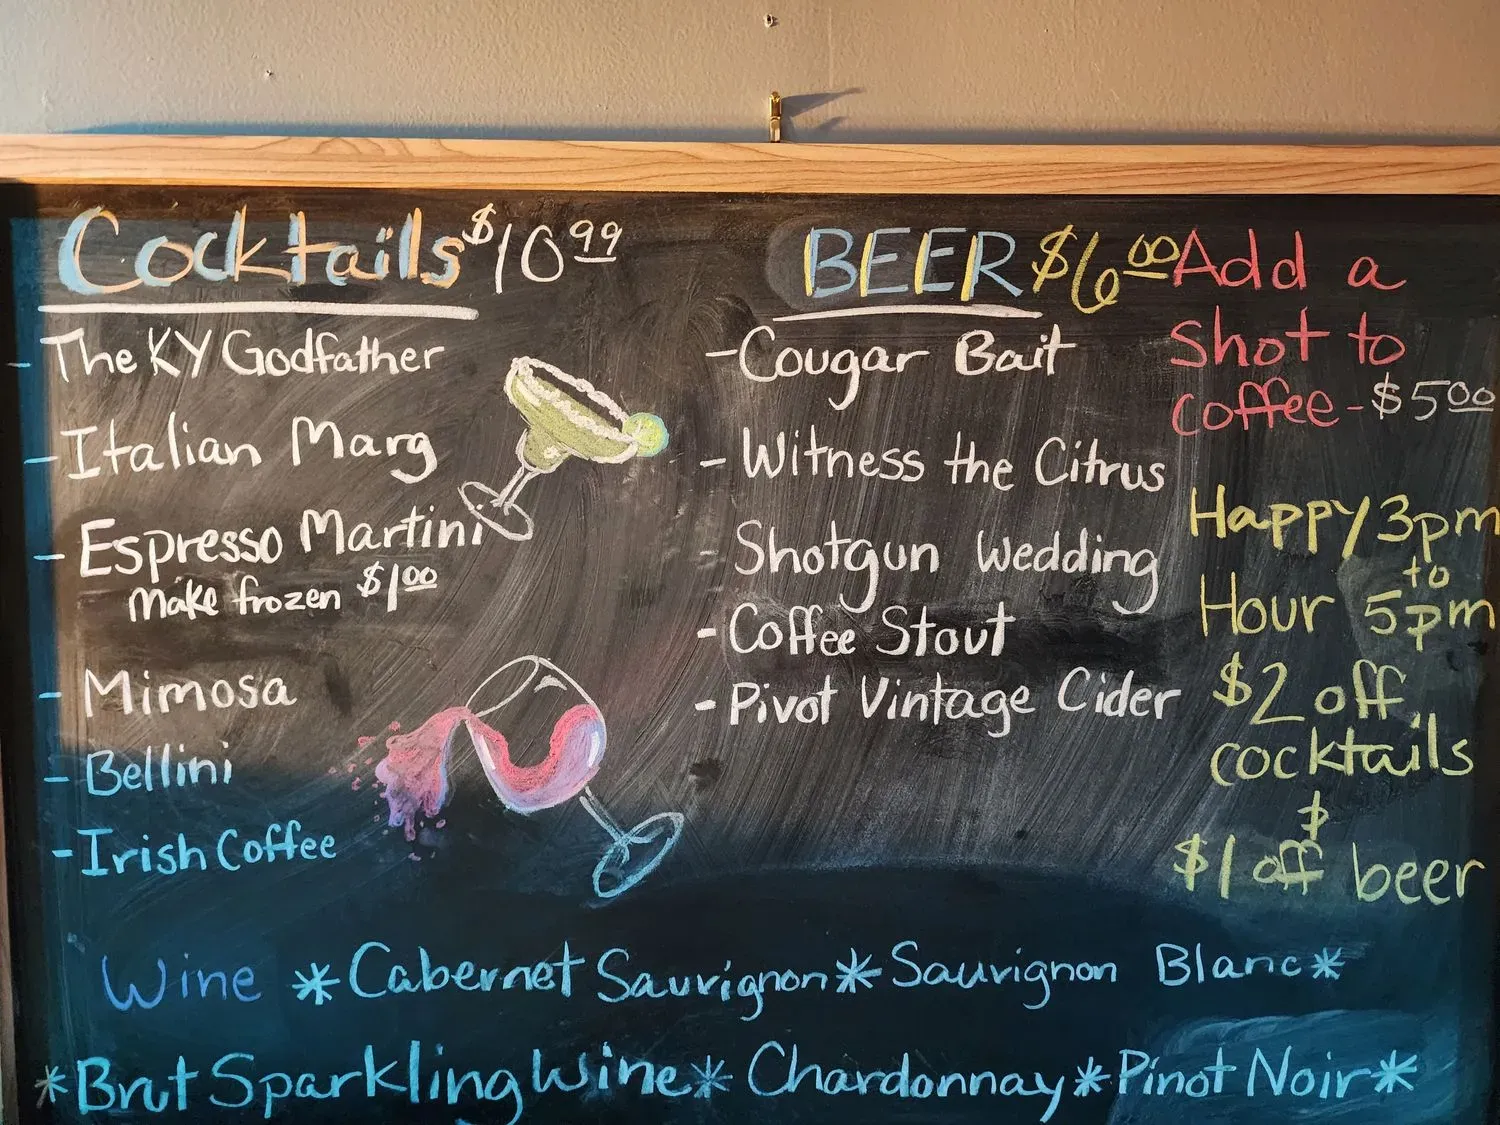 Cocktails $10.99
- The KY Godfather
- Italian Marg
- Espresso Martini
Make frozen $1.00
- Mimosa
- Bellini
- Irish Coffee
BEER $6.00
- Cougar Bait
- Witness the Citrus
- Shotgun Wedding
- Coffee Stout
- Pivot Vintage Cider
Add a
Shot to
coffee - $5.00
Happy 3pm
to
Hour 5pm
$2 off
cocktails
$
$1 off beer
Wine *Cabernet Sauvignon* Sauvignon Blanc*
*Brut Sparkling Wine* Chardonnay *Pinot Noir*